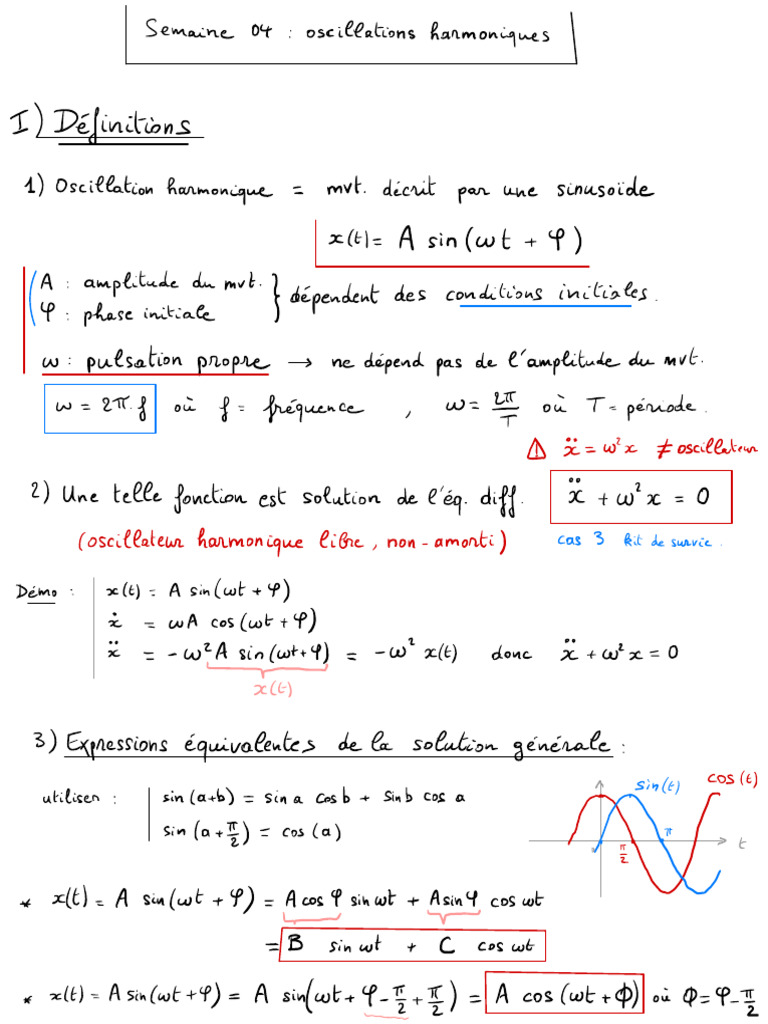 Semaine 04 : oscillations harmoniques
I) Définitions
1) Oscillation harmonique = mvt. décrit par une sinusoïde
x(t) = A sin(ωt + φ)
A : amplitude du mvt.
φ : phase initiale
} dépendent des conditions initiales.
ω : pulsation propre → ne dépend pas de l'amplitude du mvt.
ω = 2π.f où f = fréquence , ω = 2π/T où T = période.
⚠ ẍ = ω²x ≠ oscillateur
2) Une telle fonction est solution de l'éq. diff. ẍ + ω²x = 0
(oscillateur harmonique libre, non-amorti) cas 3 kit de survie.
Démo : x(t) = A sin(ωt + φ)
ẋ = ωA cos(ωt + φ)
ẍ = -ω²A sin(ωt + φ) = -ω² x(t) donc ẍ + ω²x = 0
x(t)
3) Expressions équivalentes de la solution générale :
utiliser : sin(a+b) = sin a cos b + sin b cos a
sin(a + π/2) = cos(a)
sin(t) cos(t)
π/2 π t
* x(t) = A sin(ωt + φ) = A cos φ sin ωt + A sin φ cos ωt
= B sin ωt + C cos ωt
* x(t) = A sin(ωt + φ) = A sin(ωt + φ - π/2 + π/2) = A cos(ωt + Φ) où Φ = φ - π/2